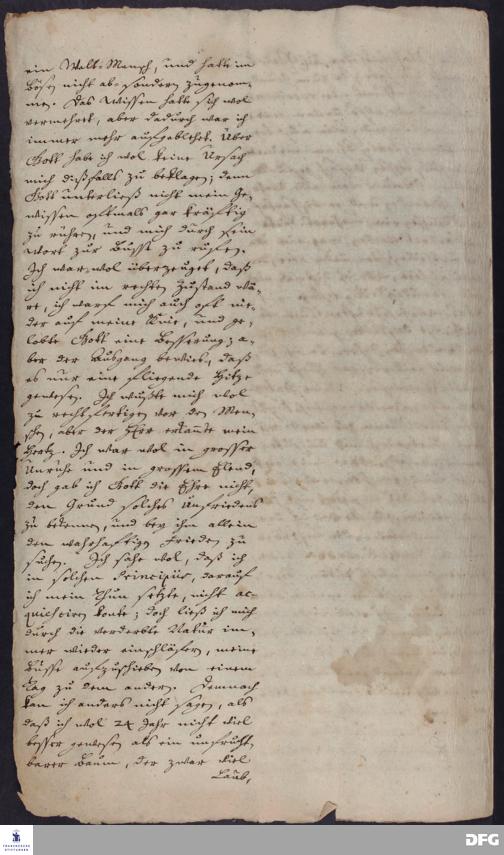 ein Welt-Mensch, und hatte im
Bösen nicht ab- sondern zugenom-
men. Das Wissen hatte sich wol
vermehret, aber dadurch war ich
immer mehr aufgeblehet. Über
Gott habe ich wol keine Ursach
mich dißfalls zu beklagen; denn
Gott unterließ nicht mein Ge-
wissen oftmals gar kräftig
zu rühren, und mich durch sein
Wort zur Busse zu ruffen.
Ich war wol überzeuget, daß
ich nicht im rechten Zustand wä-
re, ich warf mich auch oft nie-
der auf meine Knie, und ge-
lobte Gott eine Besserung; a-
ber der Ausgang bewies, daß
es nur eine fliegende Hitze
gewesen. Ich wußte mich wol
zu rechtfertigen vor den Men-
schen, aber der HErr erkannte mein
Hertz. Ich war wol in grosser
Unruhe und in grossem Elend,
doch gab ich Gott die Ehre nicht,
den Grund solches Unfriedens
zu bekennen, und bey ihm allein
den wahrhaftigen Frieden zu
suchen. Ich sahe wol, daß ich
in solchen Principiis, darauf
ich mein Thun setzte, nicht ac-
quiesciren konte; doch ließ ich mich
durch die verderbte Natur im-
mer wieder einschläfern, meine
Busse aufzuschieben von einem
Tag zu dem andern. Demnach
kan ich anders nicht sagen, als
daß ich wol 24 Jahr nicht viel
besser gewesen als ein unfrucht-
barer Baum, der zwar viel
Laub,
FRANCKESCHE
STIFTUNGEN
DFG